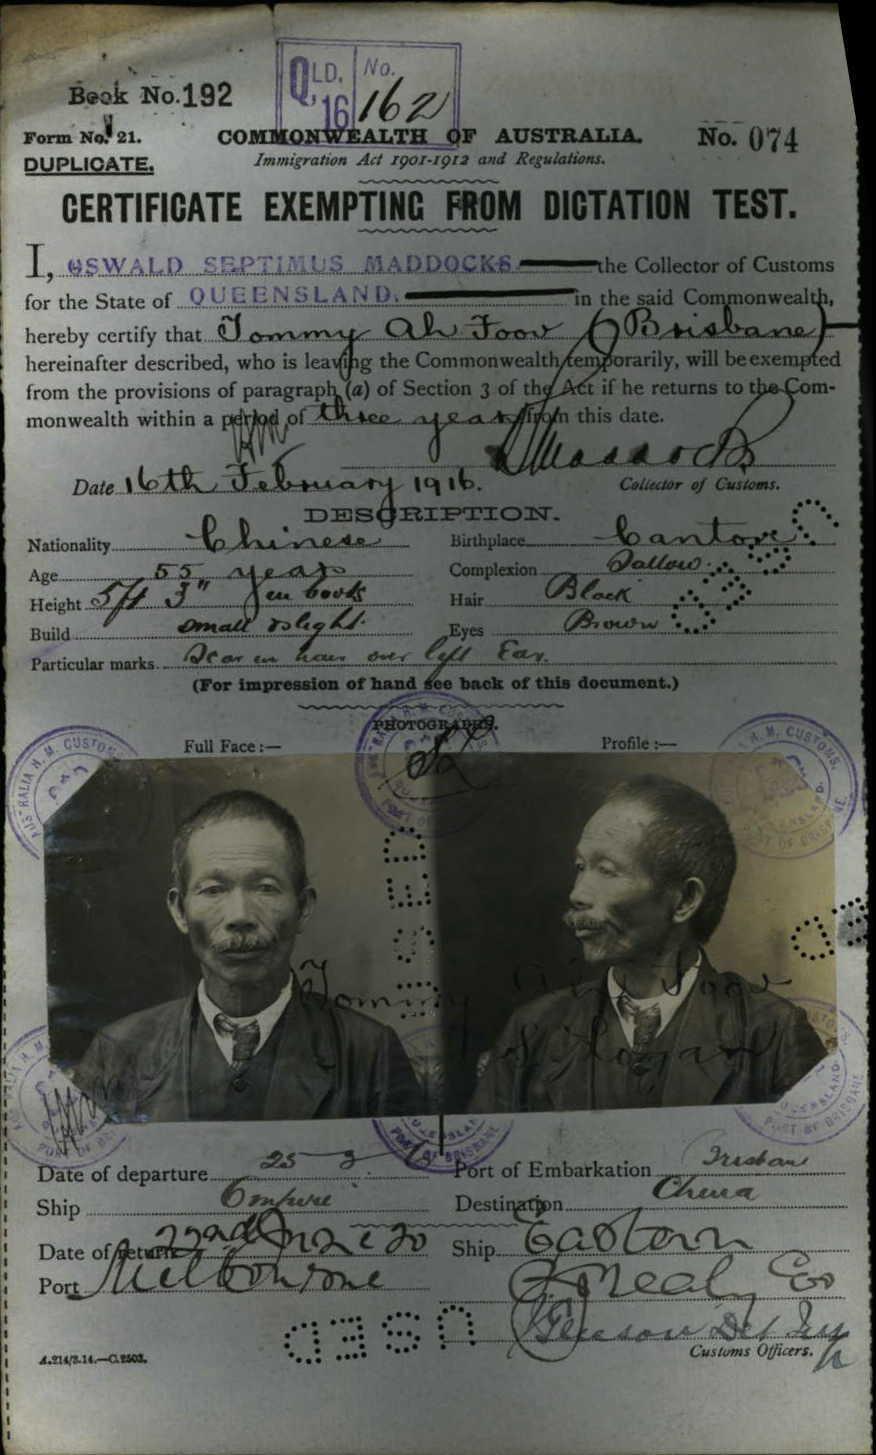 Book No. 192
QLD. No.
16 162
Form No. 21.
COMMONWEALTH OF AUSTRALIA.
No. 074
DUPLICATE.
Immigration Act 1901-1912 and Regulations.
CERTIFICATE EXEMPTING FROM DICTATION TEST.
I, OSWALD SEPTIMUS MADDOCKS the Collector of Customs
for the State of QUEENSLAND. in the said Commonwealth,
hereby certify that Tommy Ah Foov (Brisbane)
hereinafter described, who is leaving the Commonwealth temporarily, will be exempted
from the provisions of paragraph (a) of Section 3 of the Act if he returns to the Com-
monwealth within a period of three years from this date.
Date 16th February 1916.
Collector of Customs.
DESCRIPTION.
Nationality Chinese Birthplace Canton
Age 55 years Complexion Sallow.
Height 5ft 3" in boots Hair Black
Build small & slight. Eyes Brown
Particular marks. Scar in hair over left Ear.
(For impression of hand see back of this document.)
PHOTOGRAPHS.
Full Face :— Profile :—
USED
Tommy Ah Foov
Date of departure 25-3- Port of Embarkation Brisbane
Ship Empire Destination China
Date of return 22nd Ship Eastern
Port Melbourne
USED
Customs Officers.
A.214/3.14.—C.2503.